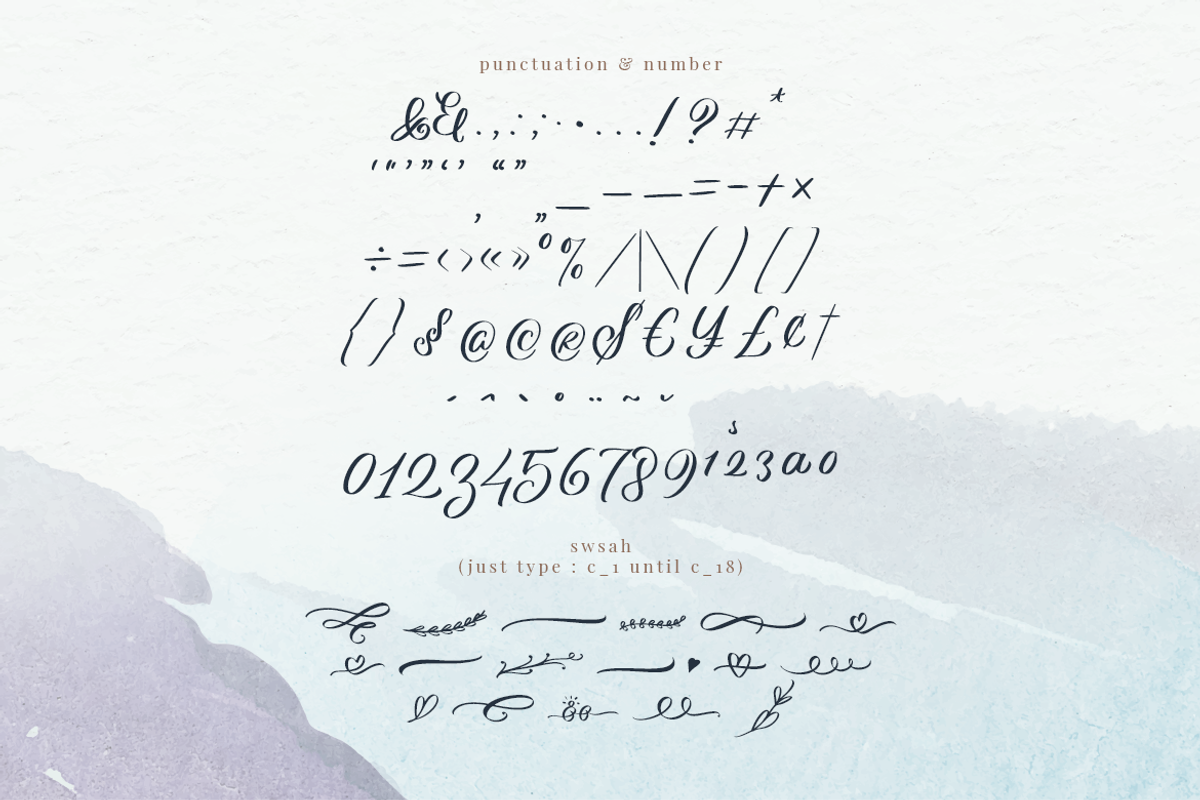 punctuation & number
&&.,:;·•...!?#*
'"'"‘’ “”
‚ „_–—=-+×
÷=‹›«»°%/|\()[]
{}$@©®$€¥£¢†
´^`°¨~˘
0123456789¹²³ªº
swsah
(just type : c_1 until c_18)